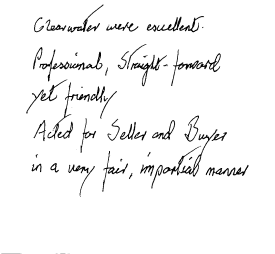 Clearwater were excellent.
Professional, Straight-forward
yet friendly
Acted for Seller and Buyer
in a very fair, impartial manner